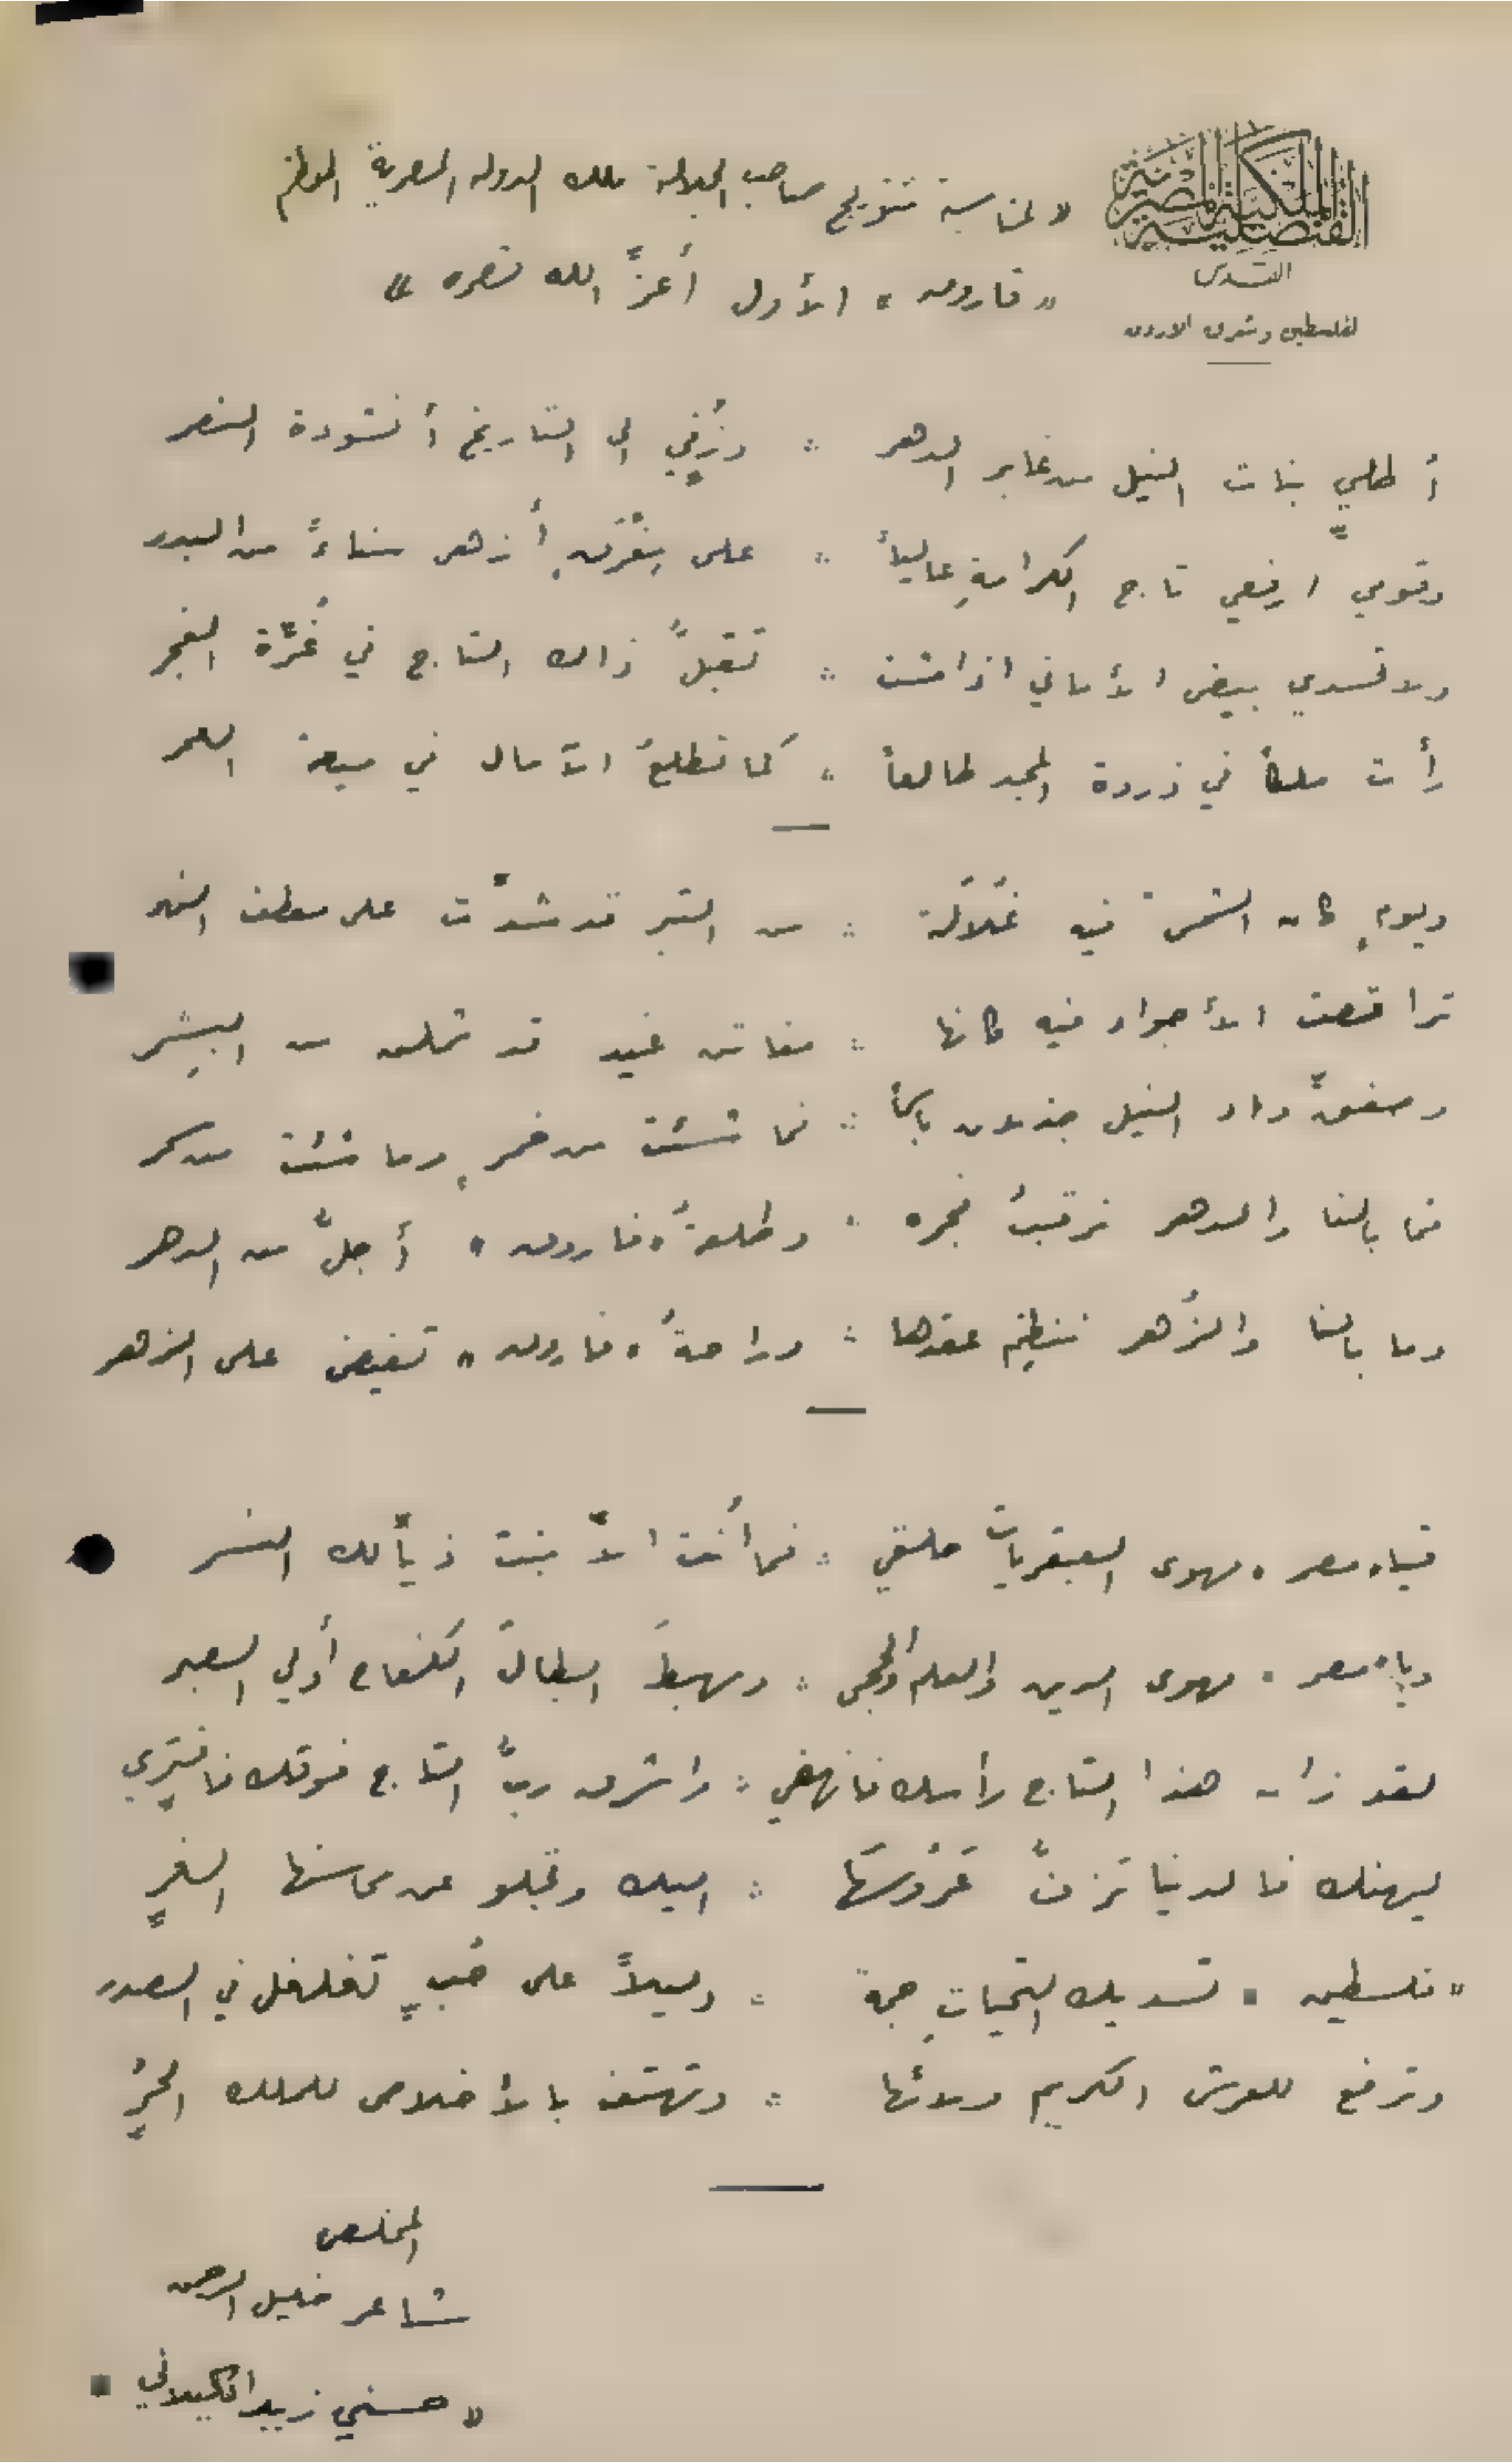 القنصلية الملكية المصرية
القدس
لفلسطين وشرق الاردن
« لمناسبة تتويج صاحب الجلالة ملك الدولة المصرية المعظم
" فاروق " الأول أعزَّ الله نصره »
أطلي بنات النيل من غابر الدهر : وزُفّي الى التاريخ أنشودة النصر
وقومي ارفعي تاج الكرامةِ عالياً : على مِفْرَقٍ أزهى سناءً من البدر
ولا تسدي بيض الأماني اذا مشت : تقبلُ ذاك التاج في غُرَّة الفجر
رأت ملكاً في ذروة المجد طالعاً : كما تطلعُ الآمال في ميعة العمر
ويومٍ كان الشمسَ فيه غَلالَة : من التبر قد شدَّت على معطف النهر
تراقصت الأجواد فيه كانها : مفاتن غيد قد ثملن من البِشر
وصفقَّ واد النيل جذلان باسماً : فما شئت من خمرٍ وما شئت من سكر
فما بالنا والدهر نرقبُ فجره : وطلعةُ " فاروق " أجلُّ من الدهر
وما بالنا والزُهر ننظم عقدها : وراحةُ " فاروق " تفيض على الزهر
فيا " مصر " مهوى العبقريات حلقي : فما أنت الاَّ بنت ذيَّالك النسر
ويا " مصر " مهوى الدين والعلم والحجى : ومهبطَ ابطال الكفاح أولي الصبر
لقد زان هذا التاج رأسك فانهضي : واشرق ربُّ التاج فوقك فافترّي
ليهنك فالدنيا تزفُّ عَرُوسَهَا : اليك وتجلو عن محاسنها الغرِّ
" فلسطين " تسديك التحياتِ جمة : دليلاً على حُبٍّ تغلغل في الصدر
وترفع للعرش الكريم ولائها : وتهتف بالأخلاص للملك الحُرِّ
المخلص
شاعر خليل الرحمن
« حسني زيد الكيلاني "